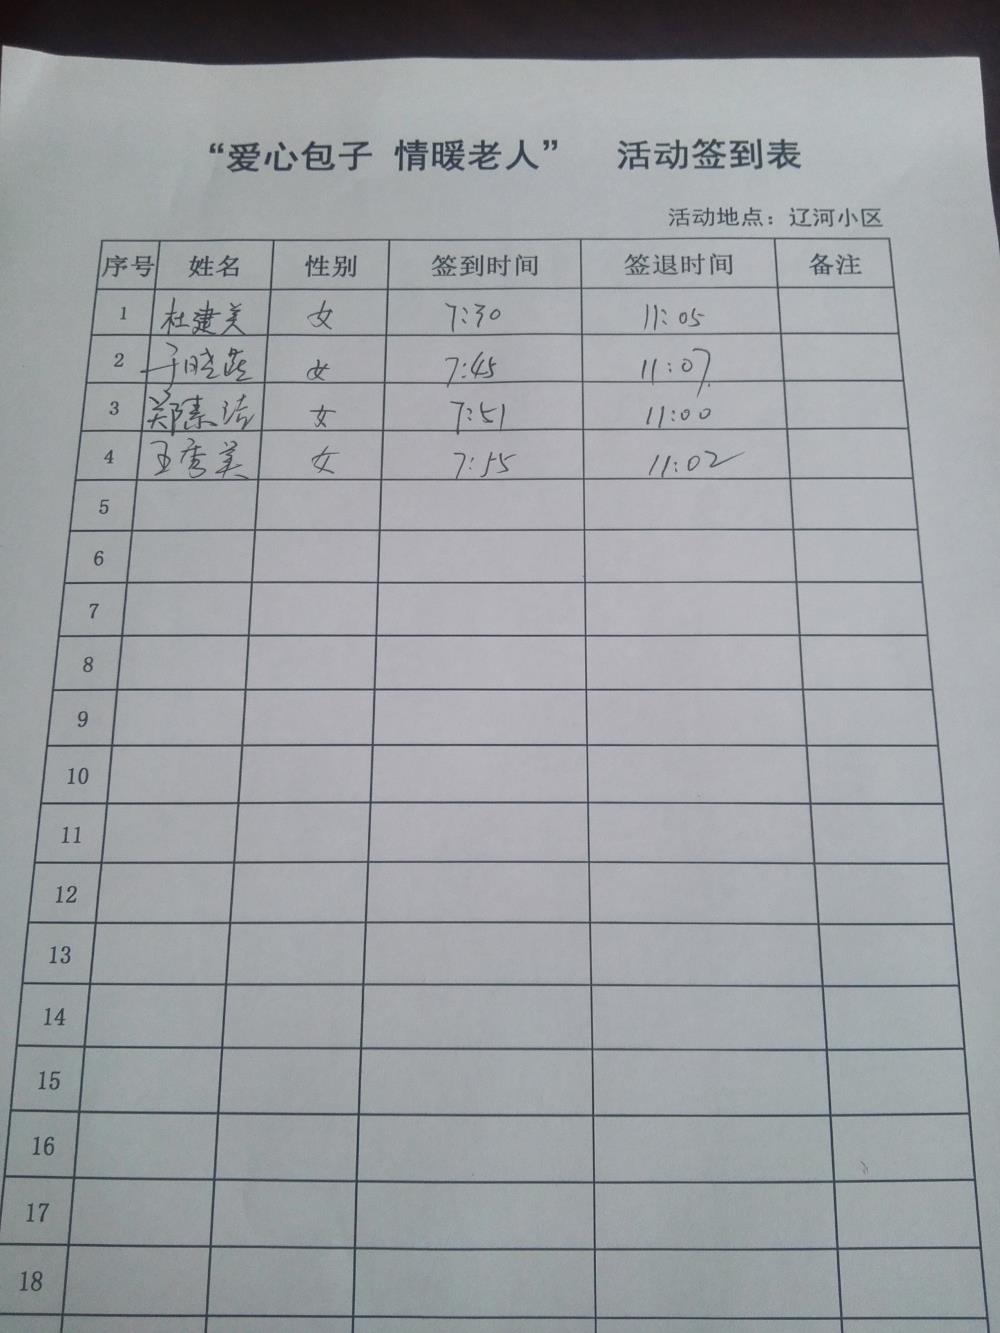 “爱心包子 情暖老人” 活动签到表
活动地点：辽河小区
序号 姓名 性别 签到时间 签退时间 备注
1 杜建美 女 7:30 11:05
2 于晓 女 7:45 11:07
3 郑素洁 女 7:51 11:00
4 王秀美 女 7:55 11:02
5
6
7
8
9
10
11
12
13
14
15
16
17
18